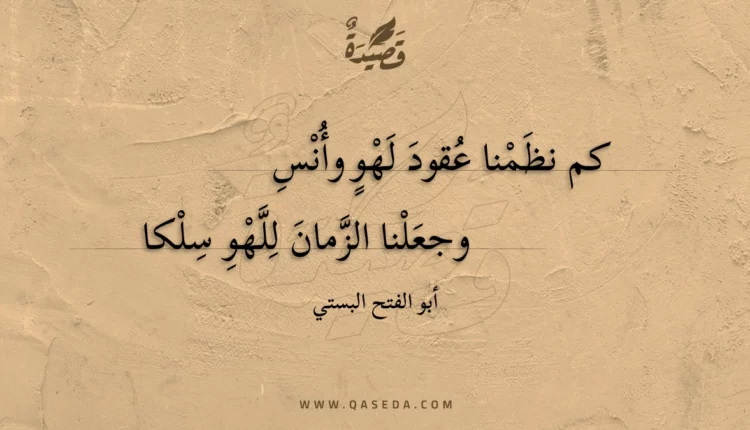 قَصِيْدَةٌ
كم نظَمْنا عُقودَ لَهْوٍ وأُنْسِ
وجعَلْنا الزَّمانَ لِلَّهْوِ سِلْكا
أبو الفتح البستي
WWW.QASEDA.COM